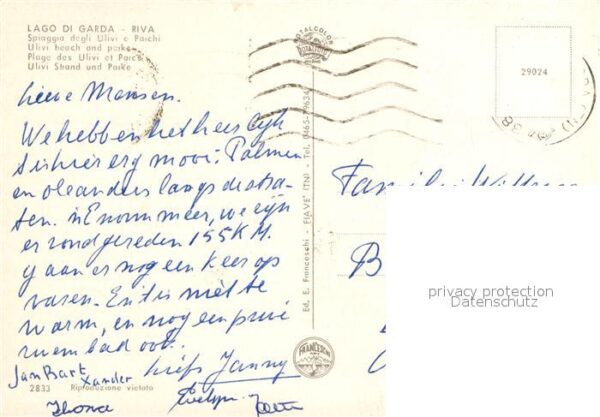 LAGO DI GARDA - RIVA
Spiaggia degli Ulivi e Parchi
Ulivi beach and parks
Plage des Ulivi et Parcs
Ulivi Strand und Parke
Lieve Mensen.
We hebben het heerlijk
't is hier erg mooi. Palmen
en oleanders langs de stra-
ten. 'n Enorm meer, we zijn
er rond gereden 155 KM.
gaan er nog een keer op
varen. En 't is niet te
warm, en nog een privé
zwembad ook.
liefs Janny
Jan Bart
Xander
Ilona
Evelyn
2833 Riproduzione vietata
Ed. E. Franceschi - FIAVÈ (TN) - Tel. 0465-
TOTALCOLOR
FRANCESCHI
29024
38
Familie
B
privacy protection
Datenschutz